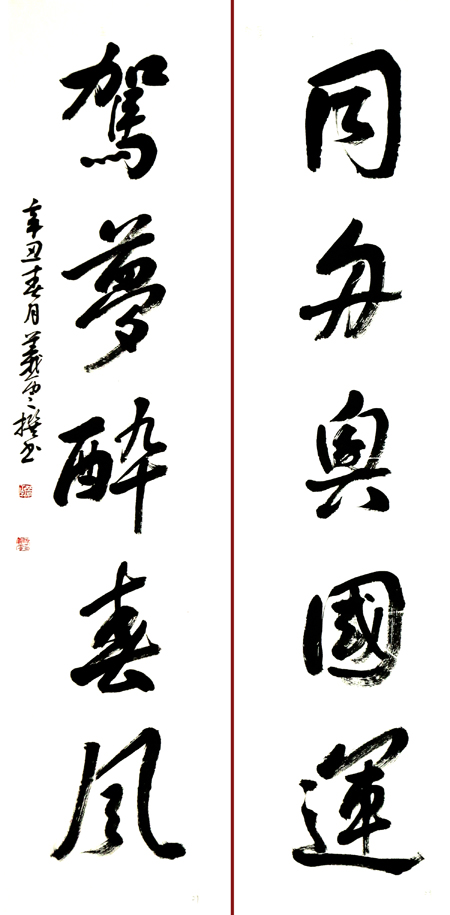 同舟興國運
駕夢醉春風
辛丑春月撰书